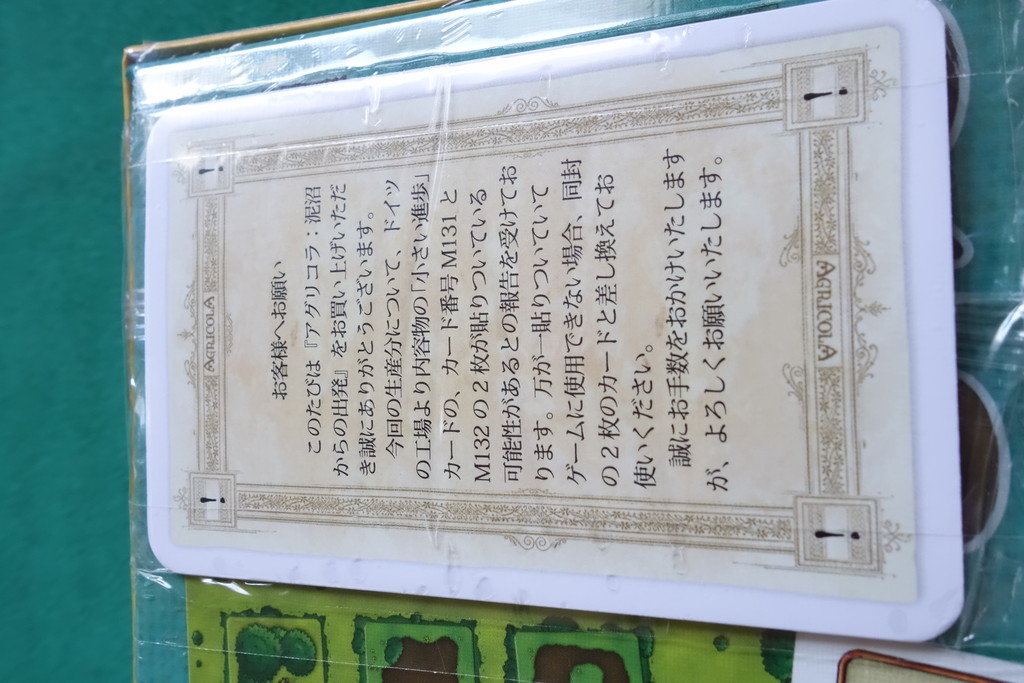 AGRICOLA
お客様へお願い
このたびは『アグリコラ：泥沼
からの出発』をお買い上げいただ
き誠にありがとうございます。
今回の生産分について、ドイツ
の工場より内容物の「小さい進歩」
カードの、カード番号 M131 と
M132 の 2 枚が貼りついている
可能性があるとの報告を受けてお
ります。万が一貼りついていて
ゲームに使用できない場合、同封
の 2 枚のカードと差し換えてお
使いください。
誠にお手数をおかけいたします
が、よろしくお願いいたします。
AGRICOLA